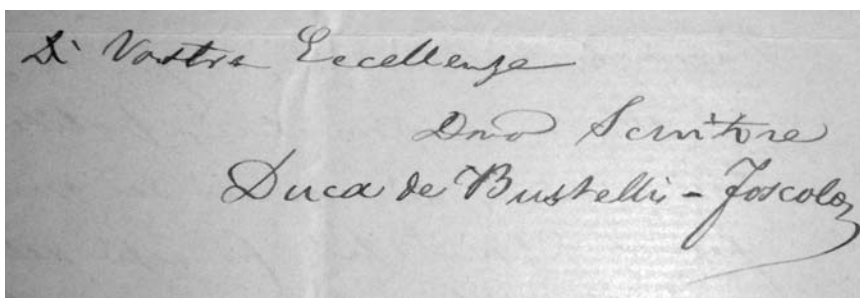 Di Vostra Eccellenza
Dmo Servitore
Duca de Bustelli - Foscolo